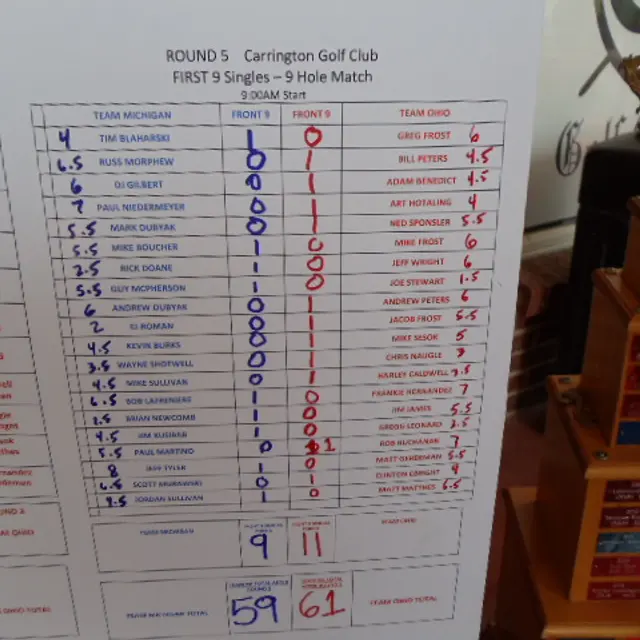 ROUND 5 Carrington Golf Club
FIRST 9 Singles – 9 Hole Match
9:00AM Start
TEAM MICHIGAN FRONT 9 FRONT 9 TEAM OHIO
4 TIM BLAHARSKI 1 0 GREG FROST 6
6.5 RUSS MORPHEW 0 1 BILL PETERS 4.5
6 DJ GILBERT 0 1 ADAM BENEDICT 4.5
7 PAUL NIEDERMEYER 0 1 ART HOTALING 4
5.5 MARK DUBYAK 0 1 NED SPONSLER 5.5
5.5 MIKE BOUCHER 1 0 MIKE FROST 6
2.5 RICK DOANE 1 0 JEFF WRIGHT 6
5.5 GUY MCPHERSON 1 0 JOE STEWART 1.5
6 ANDREW DUBYAK 0 1 ANDREW PETERS 6
2 EJ ROMAN 0 1 JACOB FROST 5.5
4.5 KEVIN BURKS 0 1 MIKE SESOK 5
3.5 WAYNE SHOTWELL 0 1 CHRIS NAUGLE 3
4.5 MIKE SULLIVAN 0 1 HARLEY CALDWELL 3.5
6.5 BOB 1 0 FRANKIE HERNANDEZ 7
2.5 BRIAN NEWCOMB 1 0 JIM JAMES 5.5
4.5 JIM 1 0 GREGG LEONARD 2.5
5.5 PAUL MARTINO 0 1 ROB BUCHANAN 7
8 JEFF TYLER 1 0 MATT 5.5
6.5 SCOTT 0 1 CLINTON 4
2.5 JORDAN SULLIVAN 1 0 MATT MATTHES 6.5
TEAM MICHIGAN 9 11 TEAM OHIO
TEAM MICHIGAN TOTAL 59 61 TEAM OHIO TOTAL